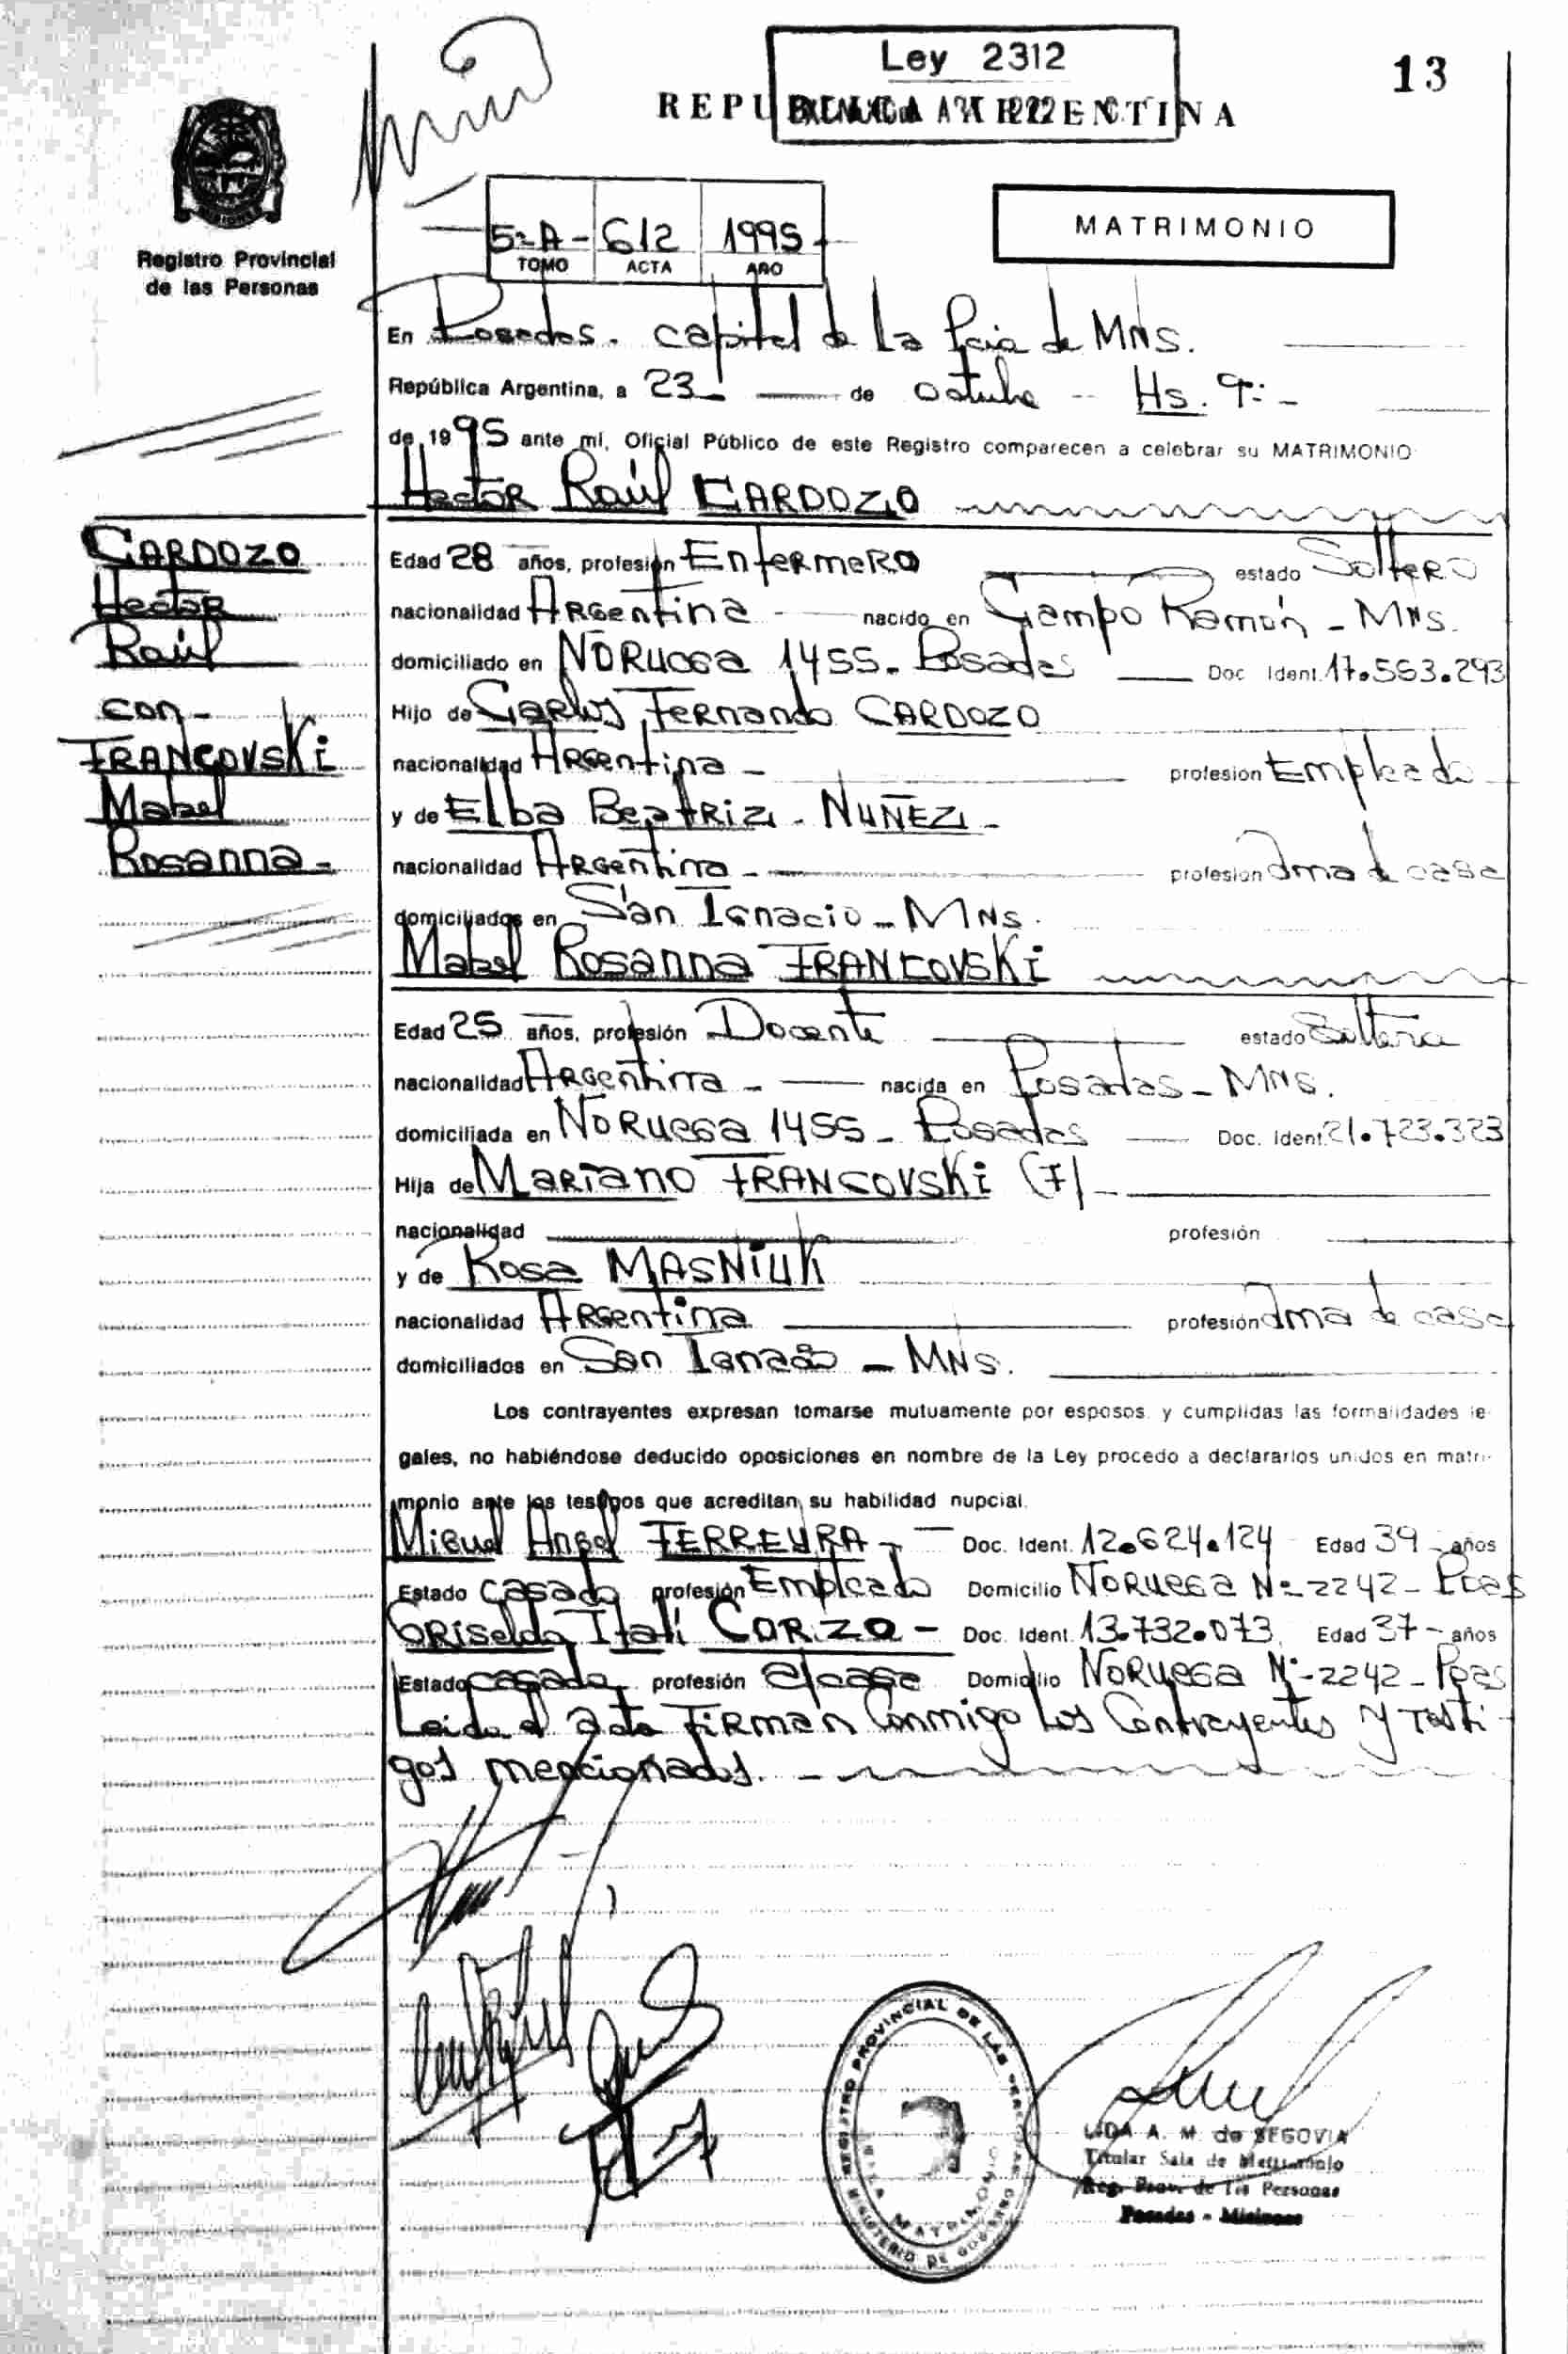 Ley 2312
13
REPUBLICA ARGENTINA
Registro Provincial
de las Personas
5º A - 612 1995 -
TOMO ACTA AÑO
MATRIMONIO
En Posadas. capital de la Pcia de MNS.
República Argentina, a 23 de octubre - Hs. 9:-
de 1995 ante mí, Oficial Público de este Registro comparecen a celebrar su MATRIMONIO
Hector Raúl CARDOZO
CARDOZO
Hector
Raúl
con-
FRANCOVSKi
Mabel
Rosanna-
Edad 28 años, profesión Enfermero estado Soltero
nacionalidad Argentina nacido en Campo Ramón - MNS.
domiciliado en NORUEGA 1455. Posadas Doc Ident. 17.553.293
Hijo de Carlos Fernando CARDOZO
nacionalidad Argentina - profesión Empleado
y de Elba Beatriz - NUÑEZ -
nacionalidad Argentina - profesión ama de casa
domiciliados en San Ignacio - MNS.
Mabel Rosanna FRANCOVSKi
Edad 25 años, profesión Docente estado Soltera
nacionalidad Argentina - nacida en Posadas - MNS.
domiciliada en NORUEGA 1455 - Posadas Doc. Ident. 21.723.323
Hija de Mariano FRANCOVSKi (F) -
nacionalidad profesión
y de Rosa MASNiUK
nacionalidad Argentina profesión ama de casa
domiciliados en San Ignacio - MNS.
Los contrayentes expresan tomarse mutuamente por esposos, y cumplidas las formalidades le-
gales, no habiéndose deducido oposiciones en nombre de la Ley procedo a declararlos unidos en matri-
monio ante los testigos que acreditan su habilidad nupcial.
Miguel Angel FERREYRA - Doc. Ident. 12.624.124 Edad 39 - años
Estado casado profesión Empleado Domicilio NORUEGA Nº 2242 - Pdas
Griselda Itatí CORZO - Doc. Ident. 13.732.073 Edad 37 - años
Estado casada profesión a/casa Domicilio NORUEGA Nº 2242 - Pdas
Leida el acta firman conmigo los Contrayentes y testi-
gos mencionados. -
REGISTRO PROVINCIAL DE LAS PERSONAS
SALA MATRIMONIO
MINISTERIO DE GOBIERNO
LIDA A. M. de SEGOVIA
Titular Sala de Matrimonio
Reg. Prov. de las Personas
Posadas - Misiones